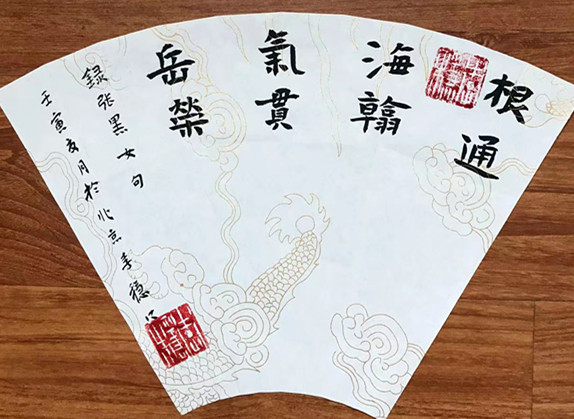 根通
海翰
氣貫
岳榮
錄張黑女句
壬寅月於北京李穩